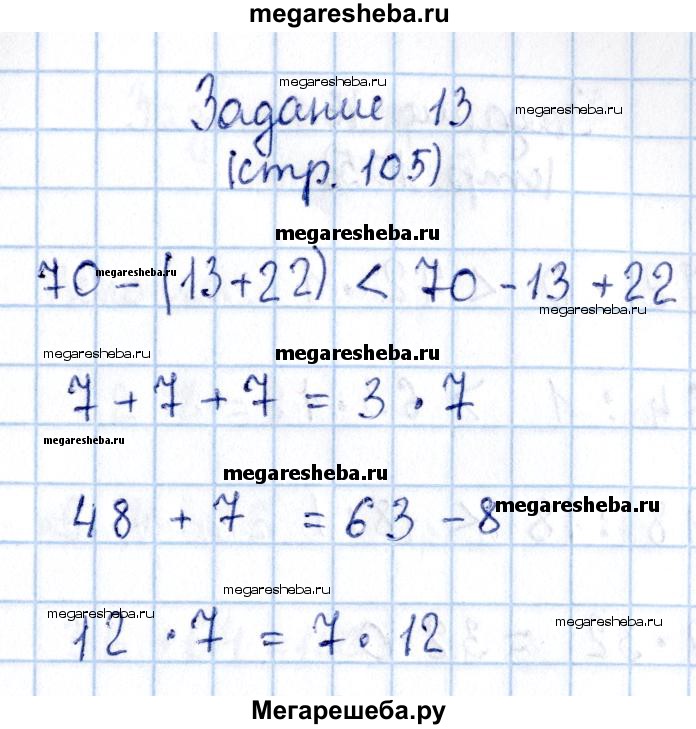 megaresheba.ru
megaresheba.ru
Задание 13
megaresheba.ru
(стр. 105)
megaresheba.ru
megaresheba.ru
70 - (13+22) < 70 - 13 + 22
megaresheba.ru
megaresheba.ru
megaresheba.ru
7 + 7 + 7 = 3 · 7
megaresheba.ru
megaresheba.ru
megaresheba.ru
48 + 7 = 63 - 8
megaresheba.ru
megaresheba.ru
megaresheba.ru
12 · 7 = 7 · 12
Мегарешеба.ру